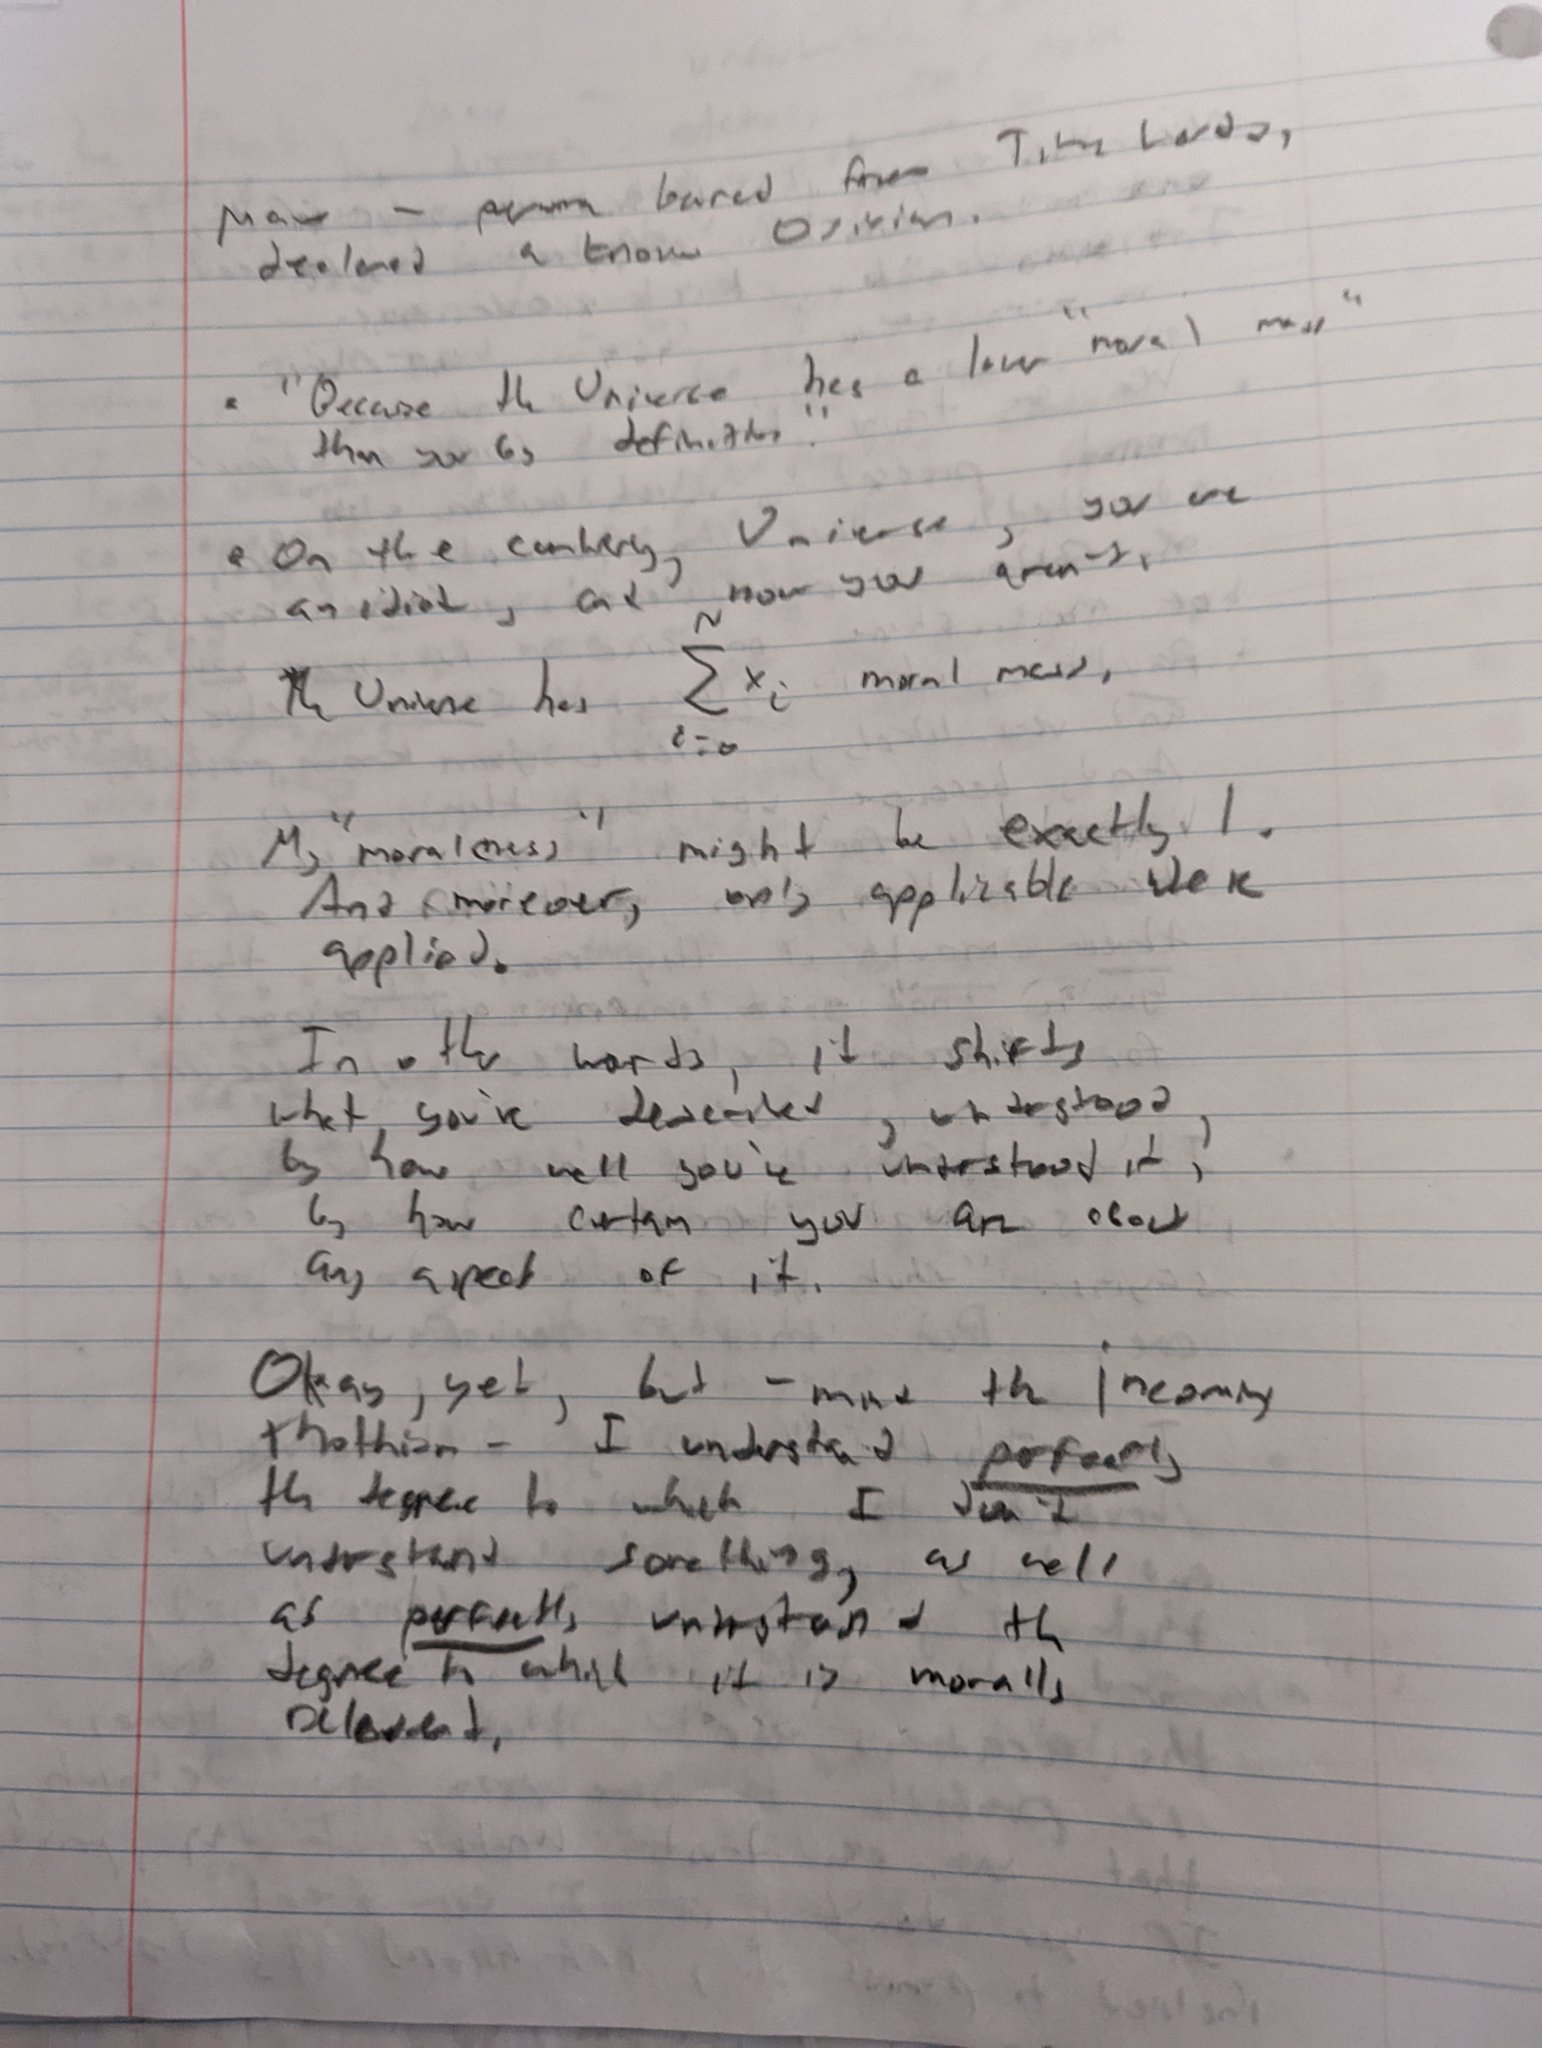 barred from Time Lords,
declared a known Osirian.
• "Because the Universe has a lower "moral mass"
than you by definition."
• On the contrary, Universe, you are
an idiot, and now you aren't.
The Universe has N∑i=0 xi moral mass.
My "moralness" might be exactly 1.
And moreover, only applicable were
applied.
In other words, it shifts
what you've described, understood,
by how well you've understood it,
by how certain you are about
any aspect of it.
Okay, yet, but - mind the incoming
Thothism - I understand perfectly
the degree to which I don't
understand something, as well
as perfectly understand the
degree to which it is morally
relevant.